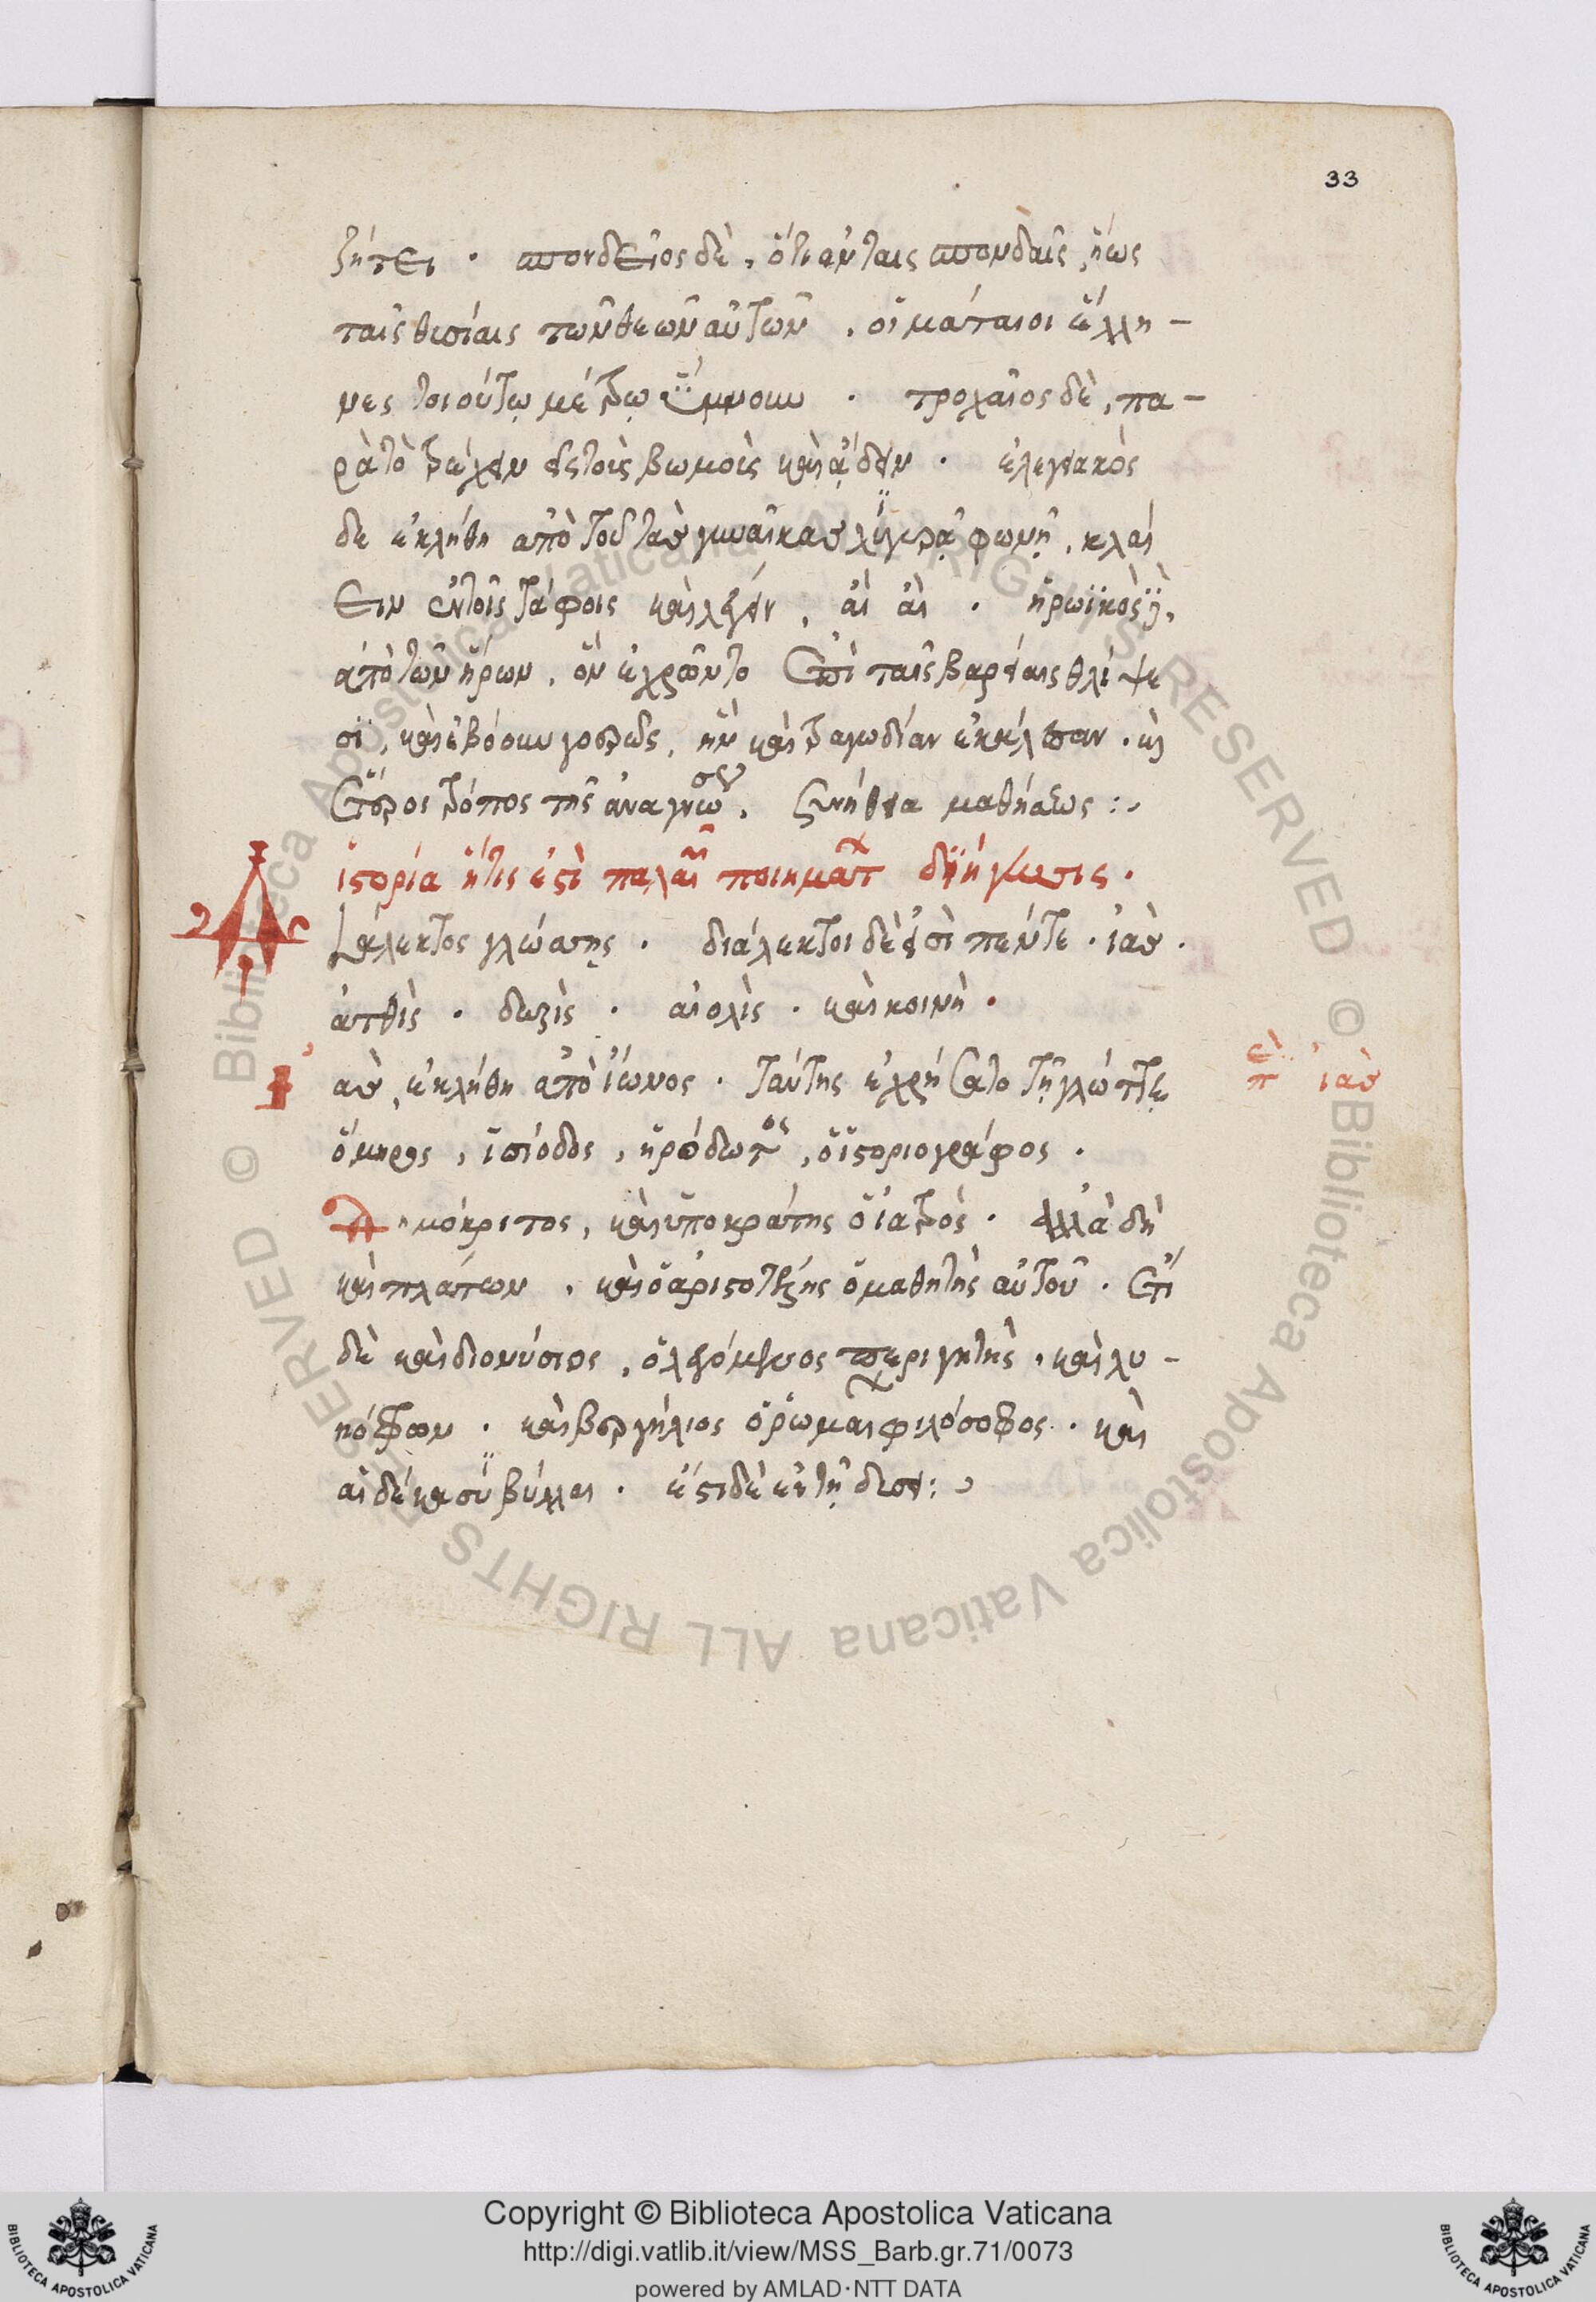 33
ζήτει · σπονδεῖος δὲ, ὅτι ἐν ταῖς σπονδαῖς, ἤως
ταῖς θυσίαις τῶν θεῶν αὐτῶν, οἱ μάταιοι ἕλλη-
νες τοιούτῳ μέτρῳ ὕμνουν · τροχαῖος δὲ, πα-
ρὰ τὸ τρέχειν εἰς τοὶς βωμοὶς καὶ ᾄδειν · ἐλεγειακὸς
δε ἐκλήθη ἀπὸ τοῦ τὰσ γυναῖκασ λϋγυρᾷ φωνῇ, κλαί
ειν ἐν τοῖς τάφοις καὶ λέγειν, αἲ αἲ · ἡρωϊκὸς
ἀπὸ τῶν ἡρώων, ὃν ἐχρῶντο ἐπὶ ταῖς βαρείαις θλίψε
σϊ, καὶ ἐβόουν γοερῶς, ἣν καὶ τραγωδίαν ἐκάλεσαν · καὶ
ἕτεροι τρόπος τῆς ἀναγνώσεως, συνήθεια μαθήσεως :·
ἱστορία ἥτις ἐστὶ παλαιῶν ποιημάτων δϊήγησις ·
Διάλεκτος γλώσσης · διάλεκτοι δέ εἰσὶ πέντε · ἰὰσ ·
ἀτθὶς · δωρὶς · αἰολὶς · καὶ κοινὴ ·
Ἰὰσ, ἐκλήθη ἀπὸ ἴωνος · ταύτης ἐχρήσατο τῇ γλώττῃ
ἐπ ἰὰσ
ὅμηρος, ἡσίοδος, ἡρόδωτος, ὁ ἱστοριογράφος ·
Δημόκριτος, καὶ ὑποκράτης ὁ ἰατρός · ἀλλὰ δὴ
καὶ πλάτων, καὶ ὁ ἀριστοτέλης ὁ μαθητὴς αὐτοῦ · ἔτι
δὲ καὶ διονύσιος, ὁ λεγόμενος περιγητὴς · καὶ λυ-
κόφρων · καὶ βεργήλιος ὁ ῥωμαι φιλόσοφος · καὶ
αἱ δέκα σϋβύλλαι · ἔστι δὲ ἐν τῇ δισει : ·
Copyright © Biblioteca Apostolica Vaticana
http://digi.vatlib.it/view/MSS_Barb.gr.71/0073
powered by AMLAD·NTT DATA
BIBLIOTECA APOSTOLICA VATICANA
BIBLIOTECA APOSTOLICA VATICANA
© Biblioteca Apostolica Vaticana ALL RIGHTS RESERVED
© Biblioteca Apostolica Vaticana ALL RIGHTS RESERVED